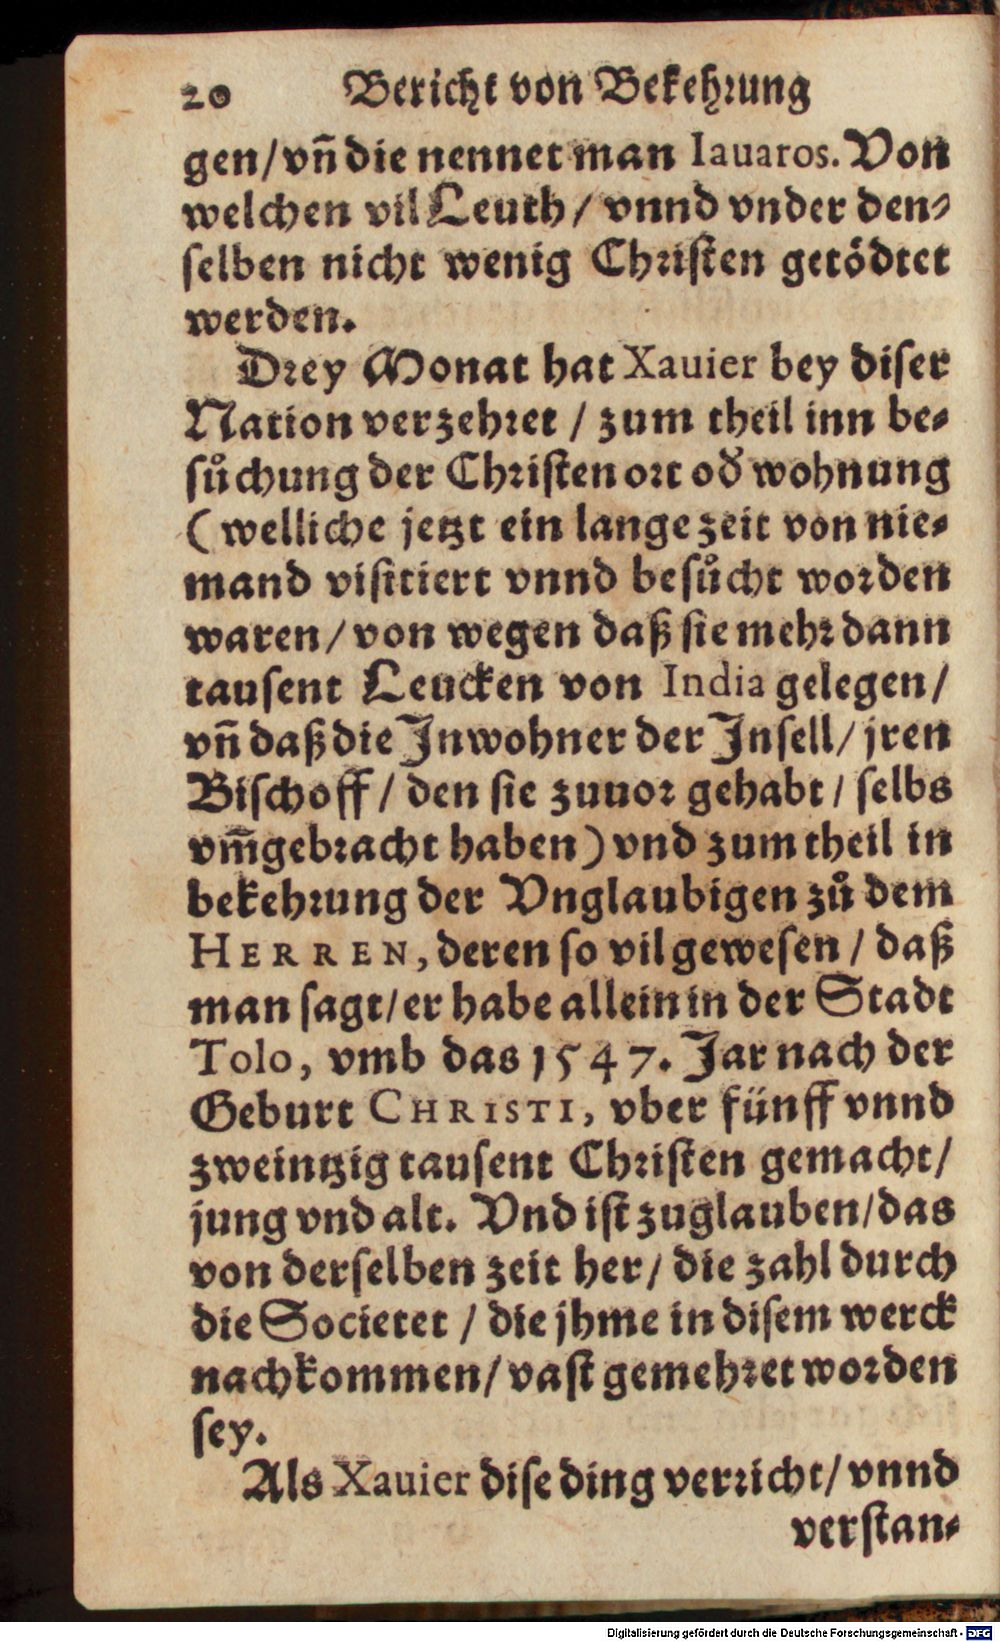 20 Bericht von Bekehrung
gen/ vñ die nennet man Iauaros. Von
welchen vil Leuth/ vnnd vnder den-
selben nicht wenig Christen getödtet
werden.
Drey Monat hat Xauier bey diser
Nation verzehret / zum theil inn be-
sůchung der Christen ort oď wohnung
(welliche jetzt ein lange zeit von nie-
mand visitiert vnnd besůcht worden
waren/ von wegen daß sie mehr dann
tausent Leucken von India gelegen/
vñ daß die Jnwohner der Jnsell/ jren
Bischoff/ den sie zuuor gehabt/ selbs
vm̄gebracht haben) vnd zum theil in
bekehrung der Vnglaubigen zů dem
HERREN, deren so vil gewesen/ daß
man sagt/ er habe allein in der Stadt
Tolo, vmb das 1547. Jar nach der
Geburt CHRISTI, vber fünff vnnd
zweintzig tausent Christen gemacht/
jung vnd alt. Vnd ist zuglauben/ das
von derselben zeit her/ die zahl durch
die Societet / die jhme in disem werck
nachkommen/ vast gemehret worden
sey.
Als Xauier dise ding verricht/ vnnd
verstan-
Digitalisierung gefördert durch die Deutsche Forschungsgemeinschaft - DFG